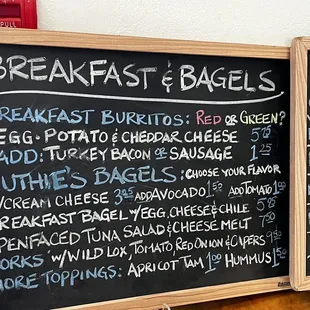 PULL
BREAKFAST & BAGELS
REAKFAST BURRITOS: RED OR GREEN?
EGG · POTATO & CHEDDAR CHEESE 5.75
ADD: TURKEY BACON OR SAUSAGE 1.25
UTHIE'S BAGELS: CHOOSE YOUR FLAVOR
/CREAM CHEESE 3.95 ADD AVOCADO 1.50 ADD TOMATO 1.00
REAKFAST BAGEL W/EGG, CHEESE & CHILE 5.95
PENFACED TUNA SALAD & CHEESE MELT 7.50
ORKS W/WILD LOX, TOMATO, RED ONION & CAPERS 9.50
ORE TOPPINGS: APRICOT TAM 1.00 HUMMUS 1.50